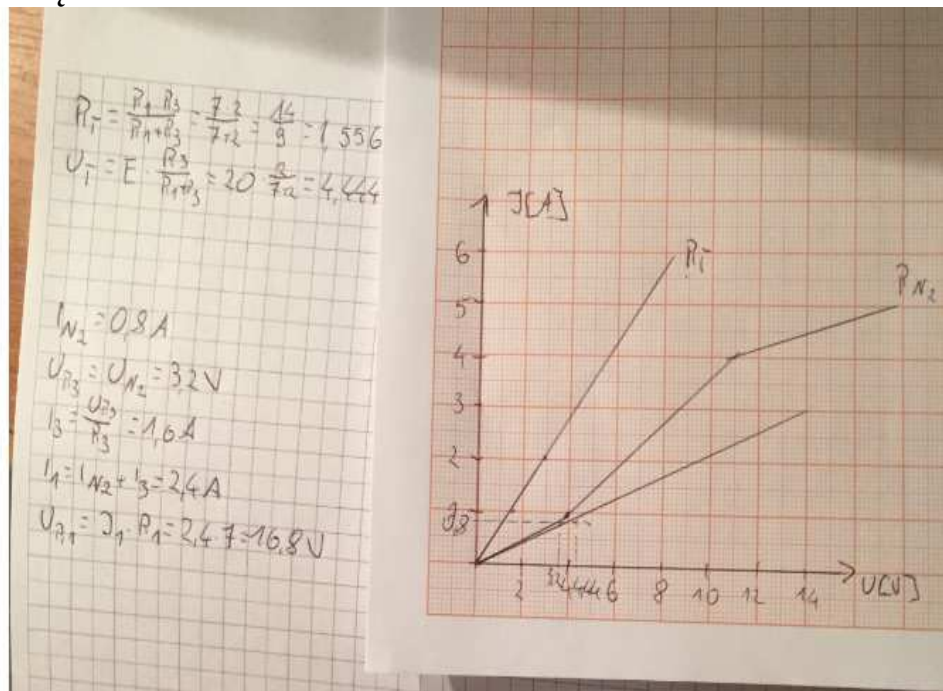 R_T = \frac{R_1 \cdot R_3}{R_1+R_3} = \frac{7 \cdot 2}{7+2} = \frac{14}{9} = 1,556
U_T = E \cdot \frac{R_3}{R_1+R_3} = 20 \cdot \frac{2}{7+2} = 4,444
I_{N2} = 0,8 A
U_{R3} = U_{N2} = 3,2 V
I_3 = \frac{U_{R3}}{R_3} = 1,6 A
I_1 = I_{N2} + I_3 = 2,4 A
U_{R1} = I_1 \cdot R_1 = 2,4 \cdot 7 = 16,8 V
I[A]
6
R_T
R_{N2}
5
4
3
2
0,8
2 3,2 4,44 6 8 10 12 14 U[V]